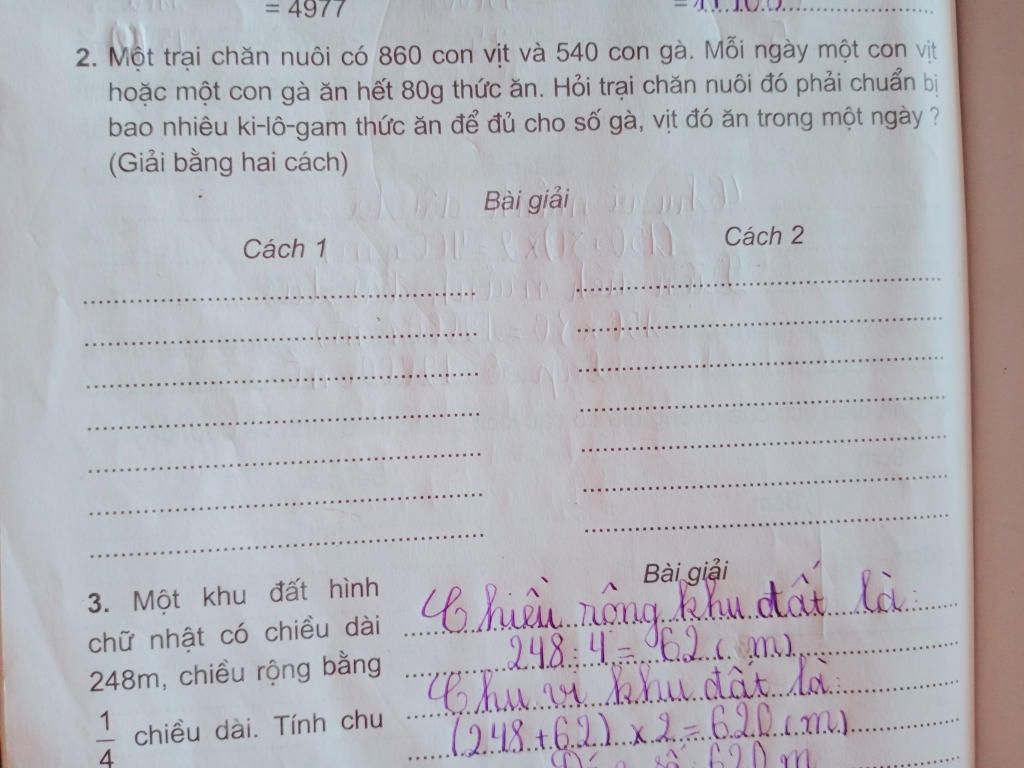 = 4977
2. Một trại chăn nuôi có 860 con vịt và 540 con gà. Mỗi ngày một con vịt
hoặc một con gà ăn hết 80g thức ăn. Hỏi trại chăn nuôi đó phải chuẩn bị
bao nhiêu ki-lô-gam thức ăn để đủ cho số gà, vịt đó ăn trong một ngày ?
(Giải bằng hai cách)
Bài giải
Cách 1
Cách 2
3. Một khu đất hình
chữ nhật có chiều dài
248m, chiều rộng bằng
1/4 chiều dài. Tính chu
Bài giải
Chiều rộng khu đất là:
248 : 4 = 62 (m)
Chu vi khu đất là:
(248 + 62) x 2 = 620 (m)
Đáp số 620 m